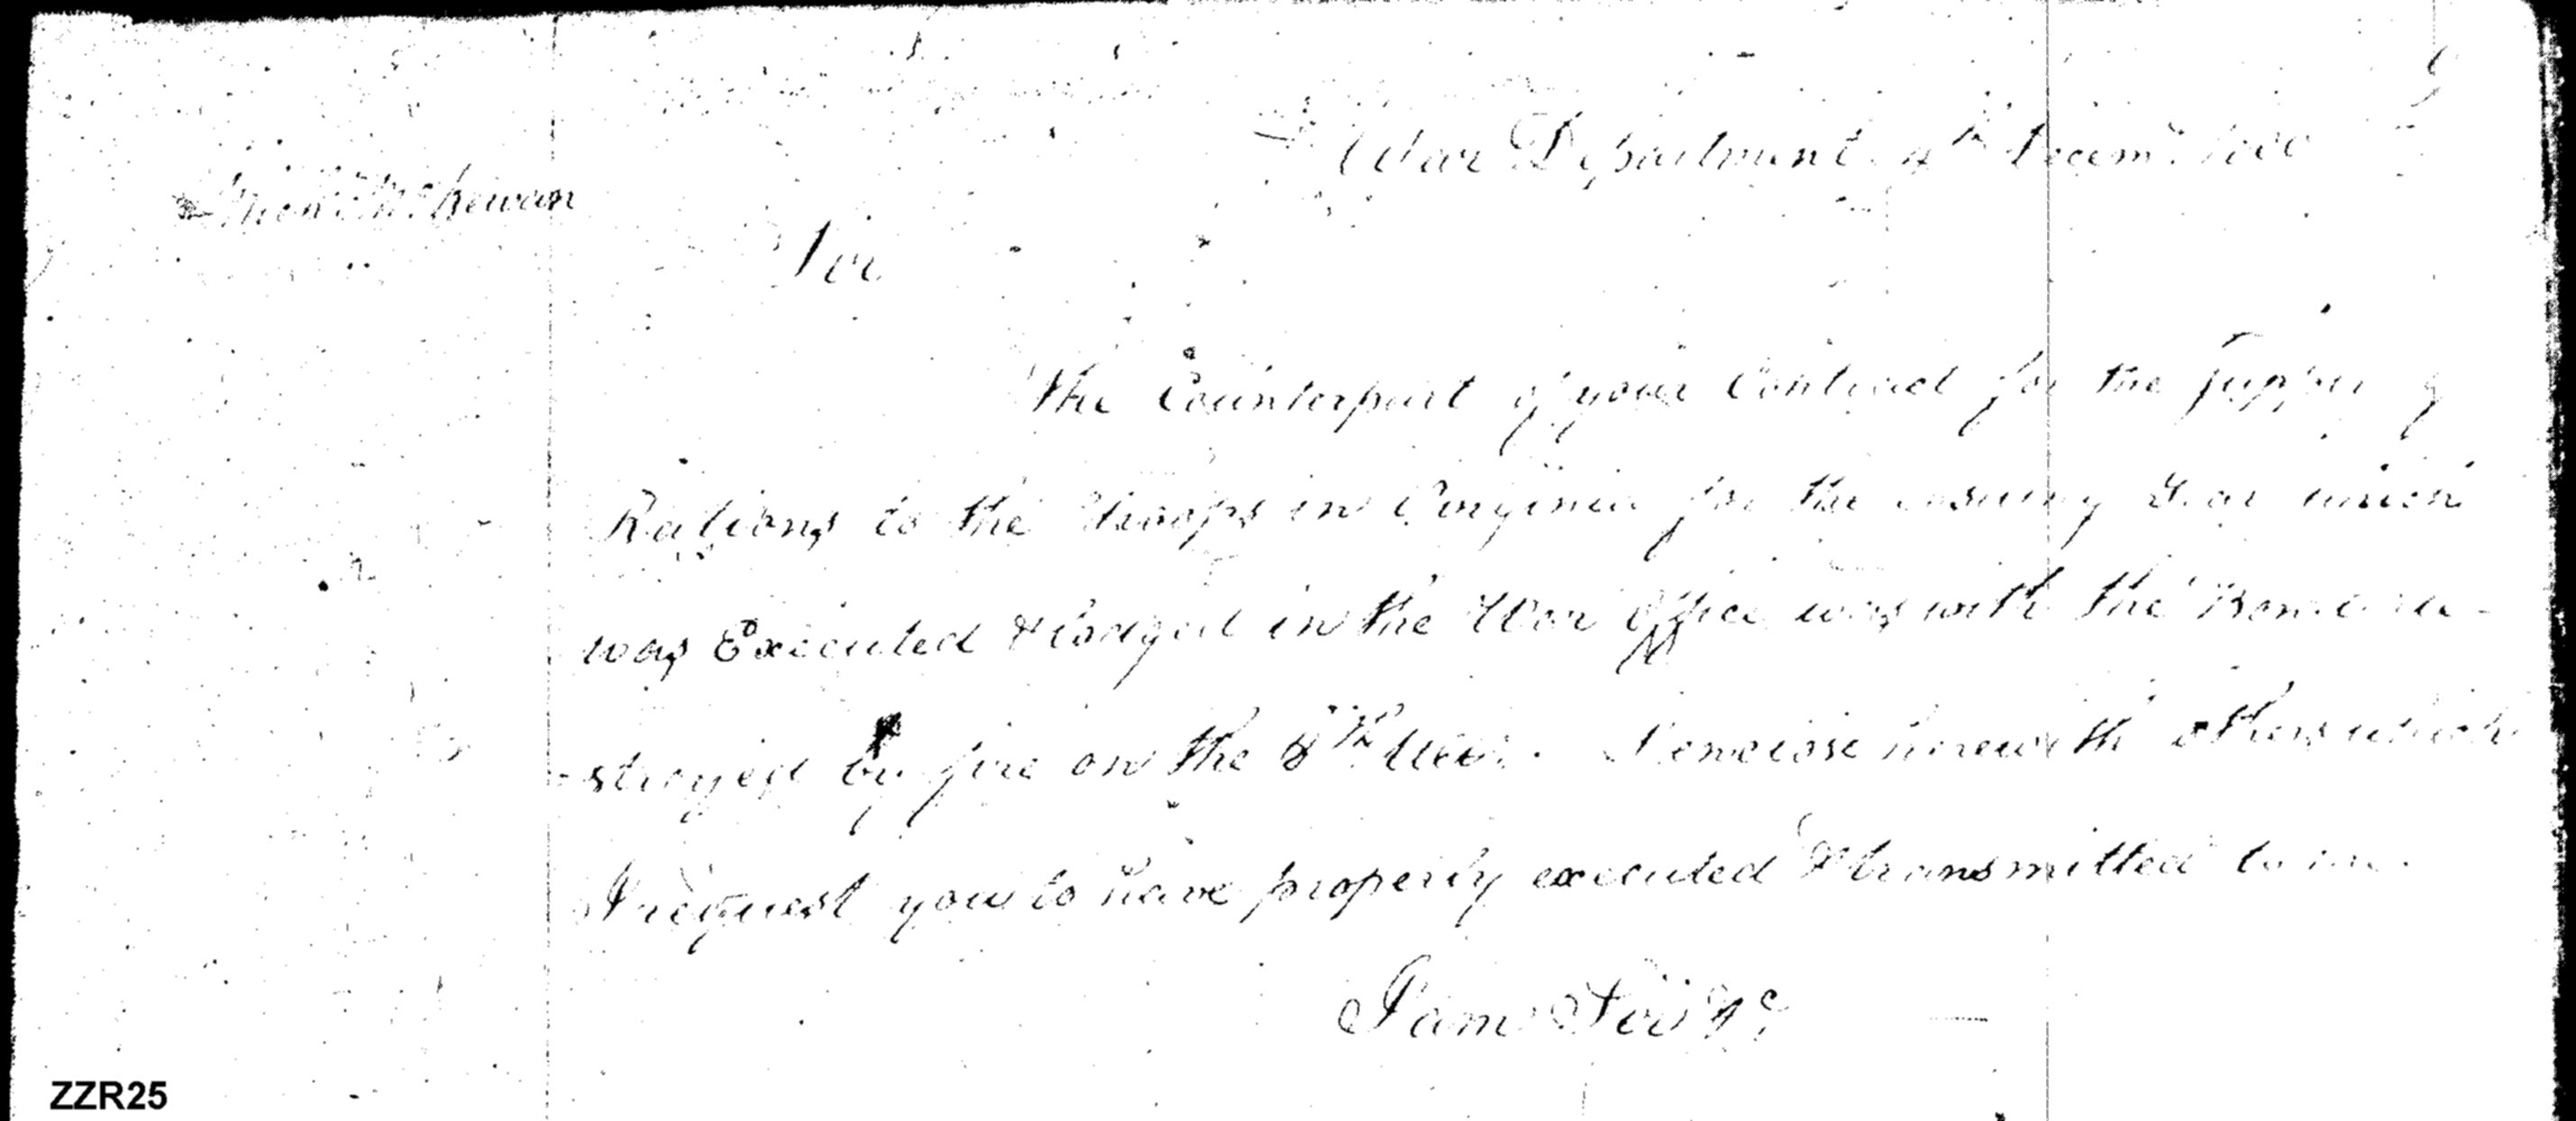 War Department 4th Decemr. 1800
McKewan
Sir
The Counterpart of your Contract for the supply of
Rations to the Troops in Virginia for the ensuing Year which
was Executed & lodged in the War Office was with the Bond de-
-stroyed by fire on the 8th Ulto. I enclose herewith others which
I request you to have properly executed & transmitted to me.
I am Sir &c
ZZR25